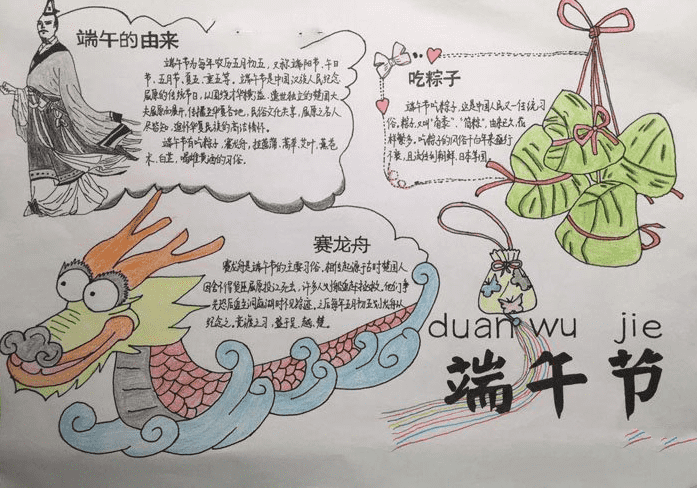 端午的由来
端午节为每年农历五月初五，又称端阳节、午日
节、五月节、夏五、重五等。端午节是中国汉族人民纪念
屈原的传统节日，以围绕才华横溢、遗世独立的楚国大
夫屈原而展开，传播至华夏各地，民俗文化共享，屈原之名人
尽皆知，追怀华夏民族的高洁情怀。
端午节有吃粽子，赛龙舟，挂菖蒲、蒿草、艾叶，薰苍
术、白芷，喝雄黄酒的习俗。
吃粽子
端午节吃粽子，这是中国人民又一传统习
俗。粽子，又叫"角黍"、"筒粽"，由来已久，花
样繁多。吃粽子的风俗千百年来盛行
不衰，且流传到朝鲜、日本等国。
赛龙舟
赛龙舟是端午节的主要习俗。相传起源于古时楚国人
因舍不得贤臣屈原投江死去，许多人划船追赶拯救。他们争
先恐后追至洞庭湖时不见踪迹。之后每年五月初五划龙舟以
纪念之。竞渡之习，盛于吴、越、楚。
duan wu jie
端午节